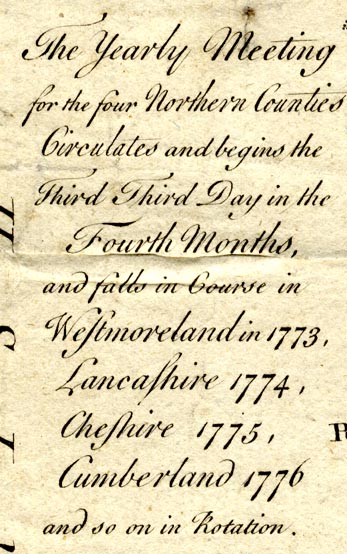 The Yearly Meeting
for the four Northern Counties
Circulates and begins the
Third Third Day in the
Fourth Months,
and falls in Course in
Weſtmoreland in 1773,
Lancaſhire 1774,
Cheſhire 1775,
Cumberland 1776
and so on in Rotation.